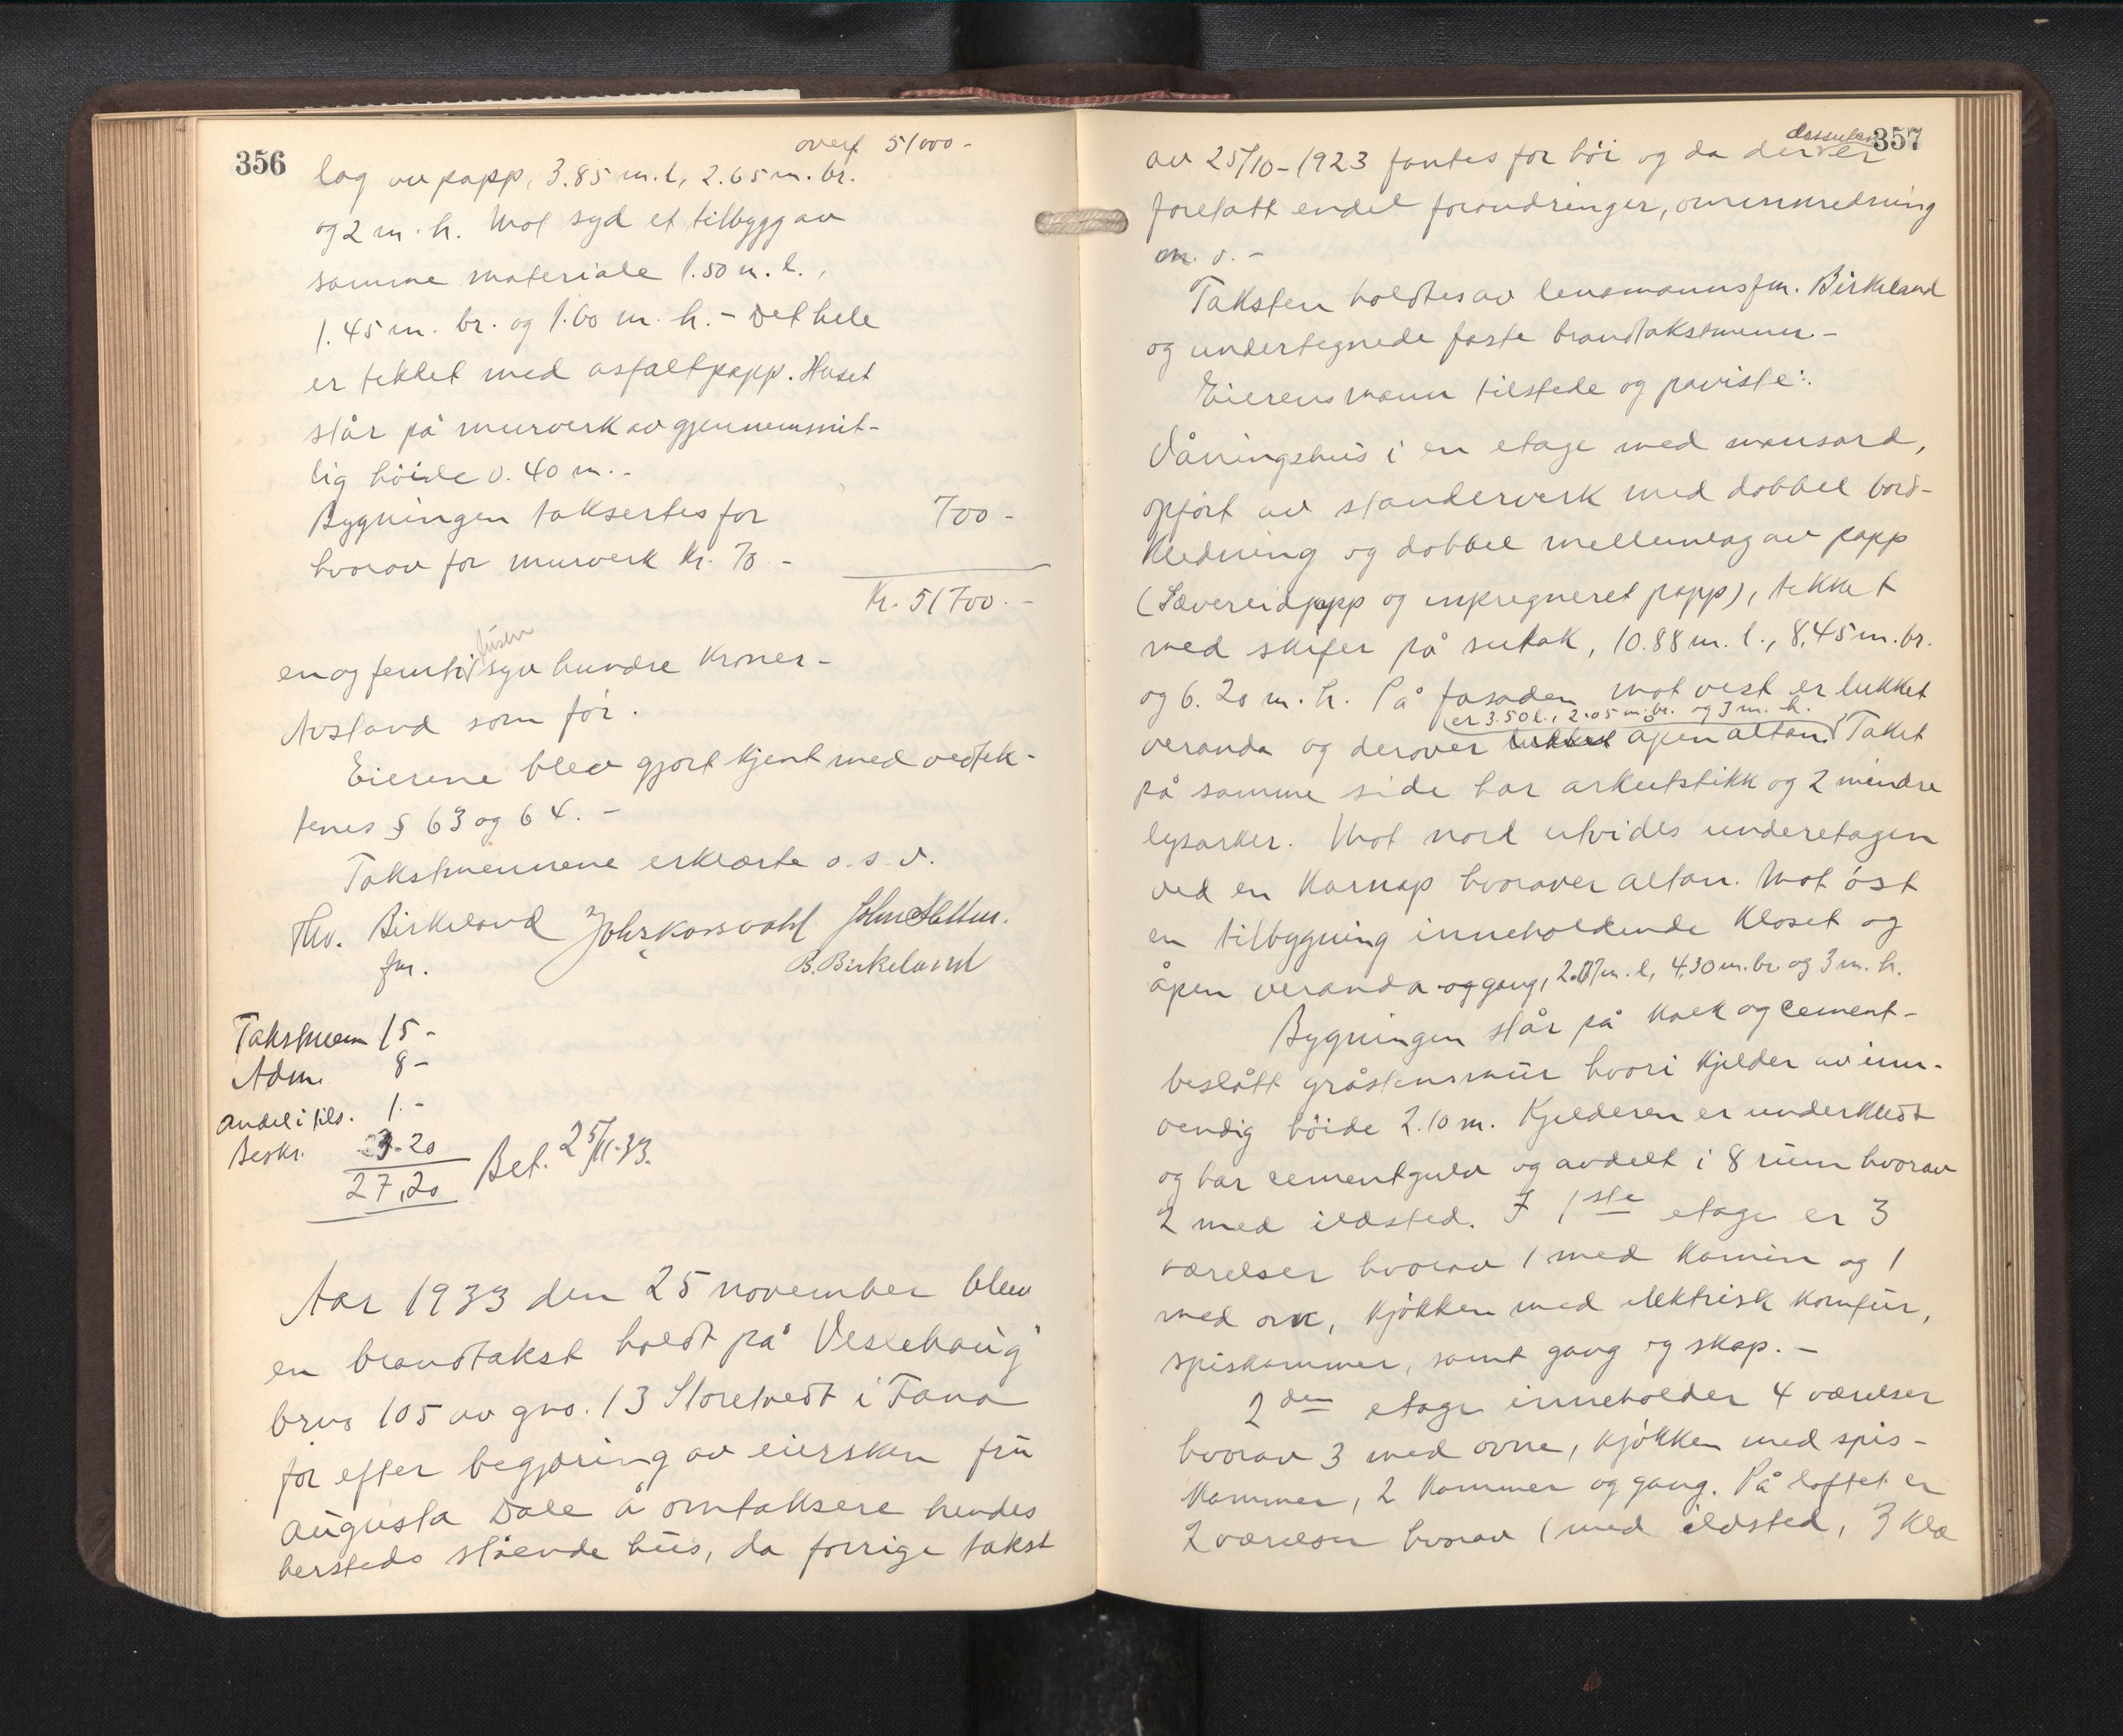 356
overf 51000 -
lag av papp, 3.85 m. l, 2.65 m. br.
og 2 m. h. Mot syd et tilbygg av
samme materiale 1.50 m. l.,
1.45 m. br. og 1.60 m. h. - Det hele
er tekket med asfaltpapp. Huset
står på murverk av gjennemsnit-
lig höide 0.40 m. -
Bygningen taksertes for 700 -
hvorav for murverk kr. 70 -
Kr. 51700. -
tusen
en og femti syv hundre kroner -
Avstand som för.
Eierene blev gjort kjent med vedtek-
tenes § 63 og 64. -
Takstmennene erklærte o. s. v.
Thv. Birkeland
fm.
B. Birkeland
Takstmenn 15 -
Adm. 8 -
Andel i tils. 1. -
Beskr. 3.20
27,20
Bet. 25/11.33.
Aar 1933 den 25 november blev
en brandtakst holdt på "Veslehaug"
brno 105 av gno. 13 Storetvedt i Fana
for efter begjæring av eiersken fru
Augusta Dale å omtaksere hendes
hersteds stående hus, da forrige takst
357
dessuten
av 25/10 - 1923 fantes for höi og da der er
foretatt endel forandringer, ominnredning
m. v. -
Taksten holdtes av lensmannsfm. Birkeland
og undertegnede faste brandtakstmenn -
Eierens mann tilstede og paviste:
Våningshus i en etage med mansard,
opfört av standerverk med dobbel bord-
kledning og dobbel mellemlag av papp
(Sævereidpapp og inpregneret papp), tekket
med skifer på sutak, 10.88 m. l., 8,45 m. br.
og 6. 20 m. h. På fasaden mot vest er lukket
er 3.50 l., 2.05 m. br. og 3 m. h.
veranda og derover lukket åpen altan. Taket
på samme side har arkutstikk og 2 mindre
lysarker. Mot nord utvides underetagen
ved en karnap hvorover altan. Mot öst
en tilbygning inneholdende kloset og
åpen veranda og gang, 2.07 m. l, 4,30 m. br. og 3 m. h.
Bygningen står på kalk og cement-
beslått gråstensmur hvori kjelder av inn-
vendig höide 2.10 m. Kjelderen er underkledt
og har cementgulv og avdelt i 8 rum hvorav
2 med ildsted. I 1ste etage er 3
værelser hvorav 1 med kamin og 1
med ovn, kjökken med elektrisk komfur,
spiskammer, samt gang og skap. -
2den etage inneholder 4 værelser
hvorav 3 med ovne, kjökken med spis-
kammer, 2 kammer og gang. På loftet er
2 værelser hvorav 1 med ildsted, 3 klæ